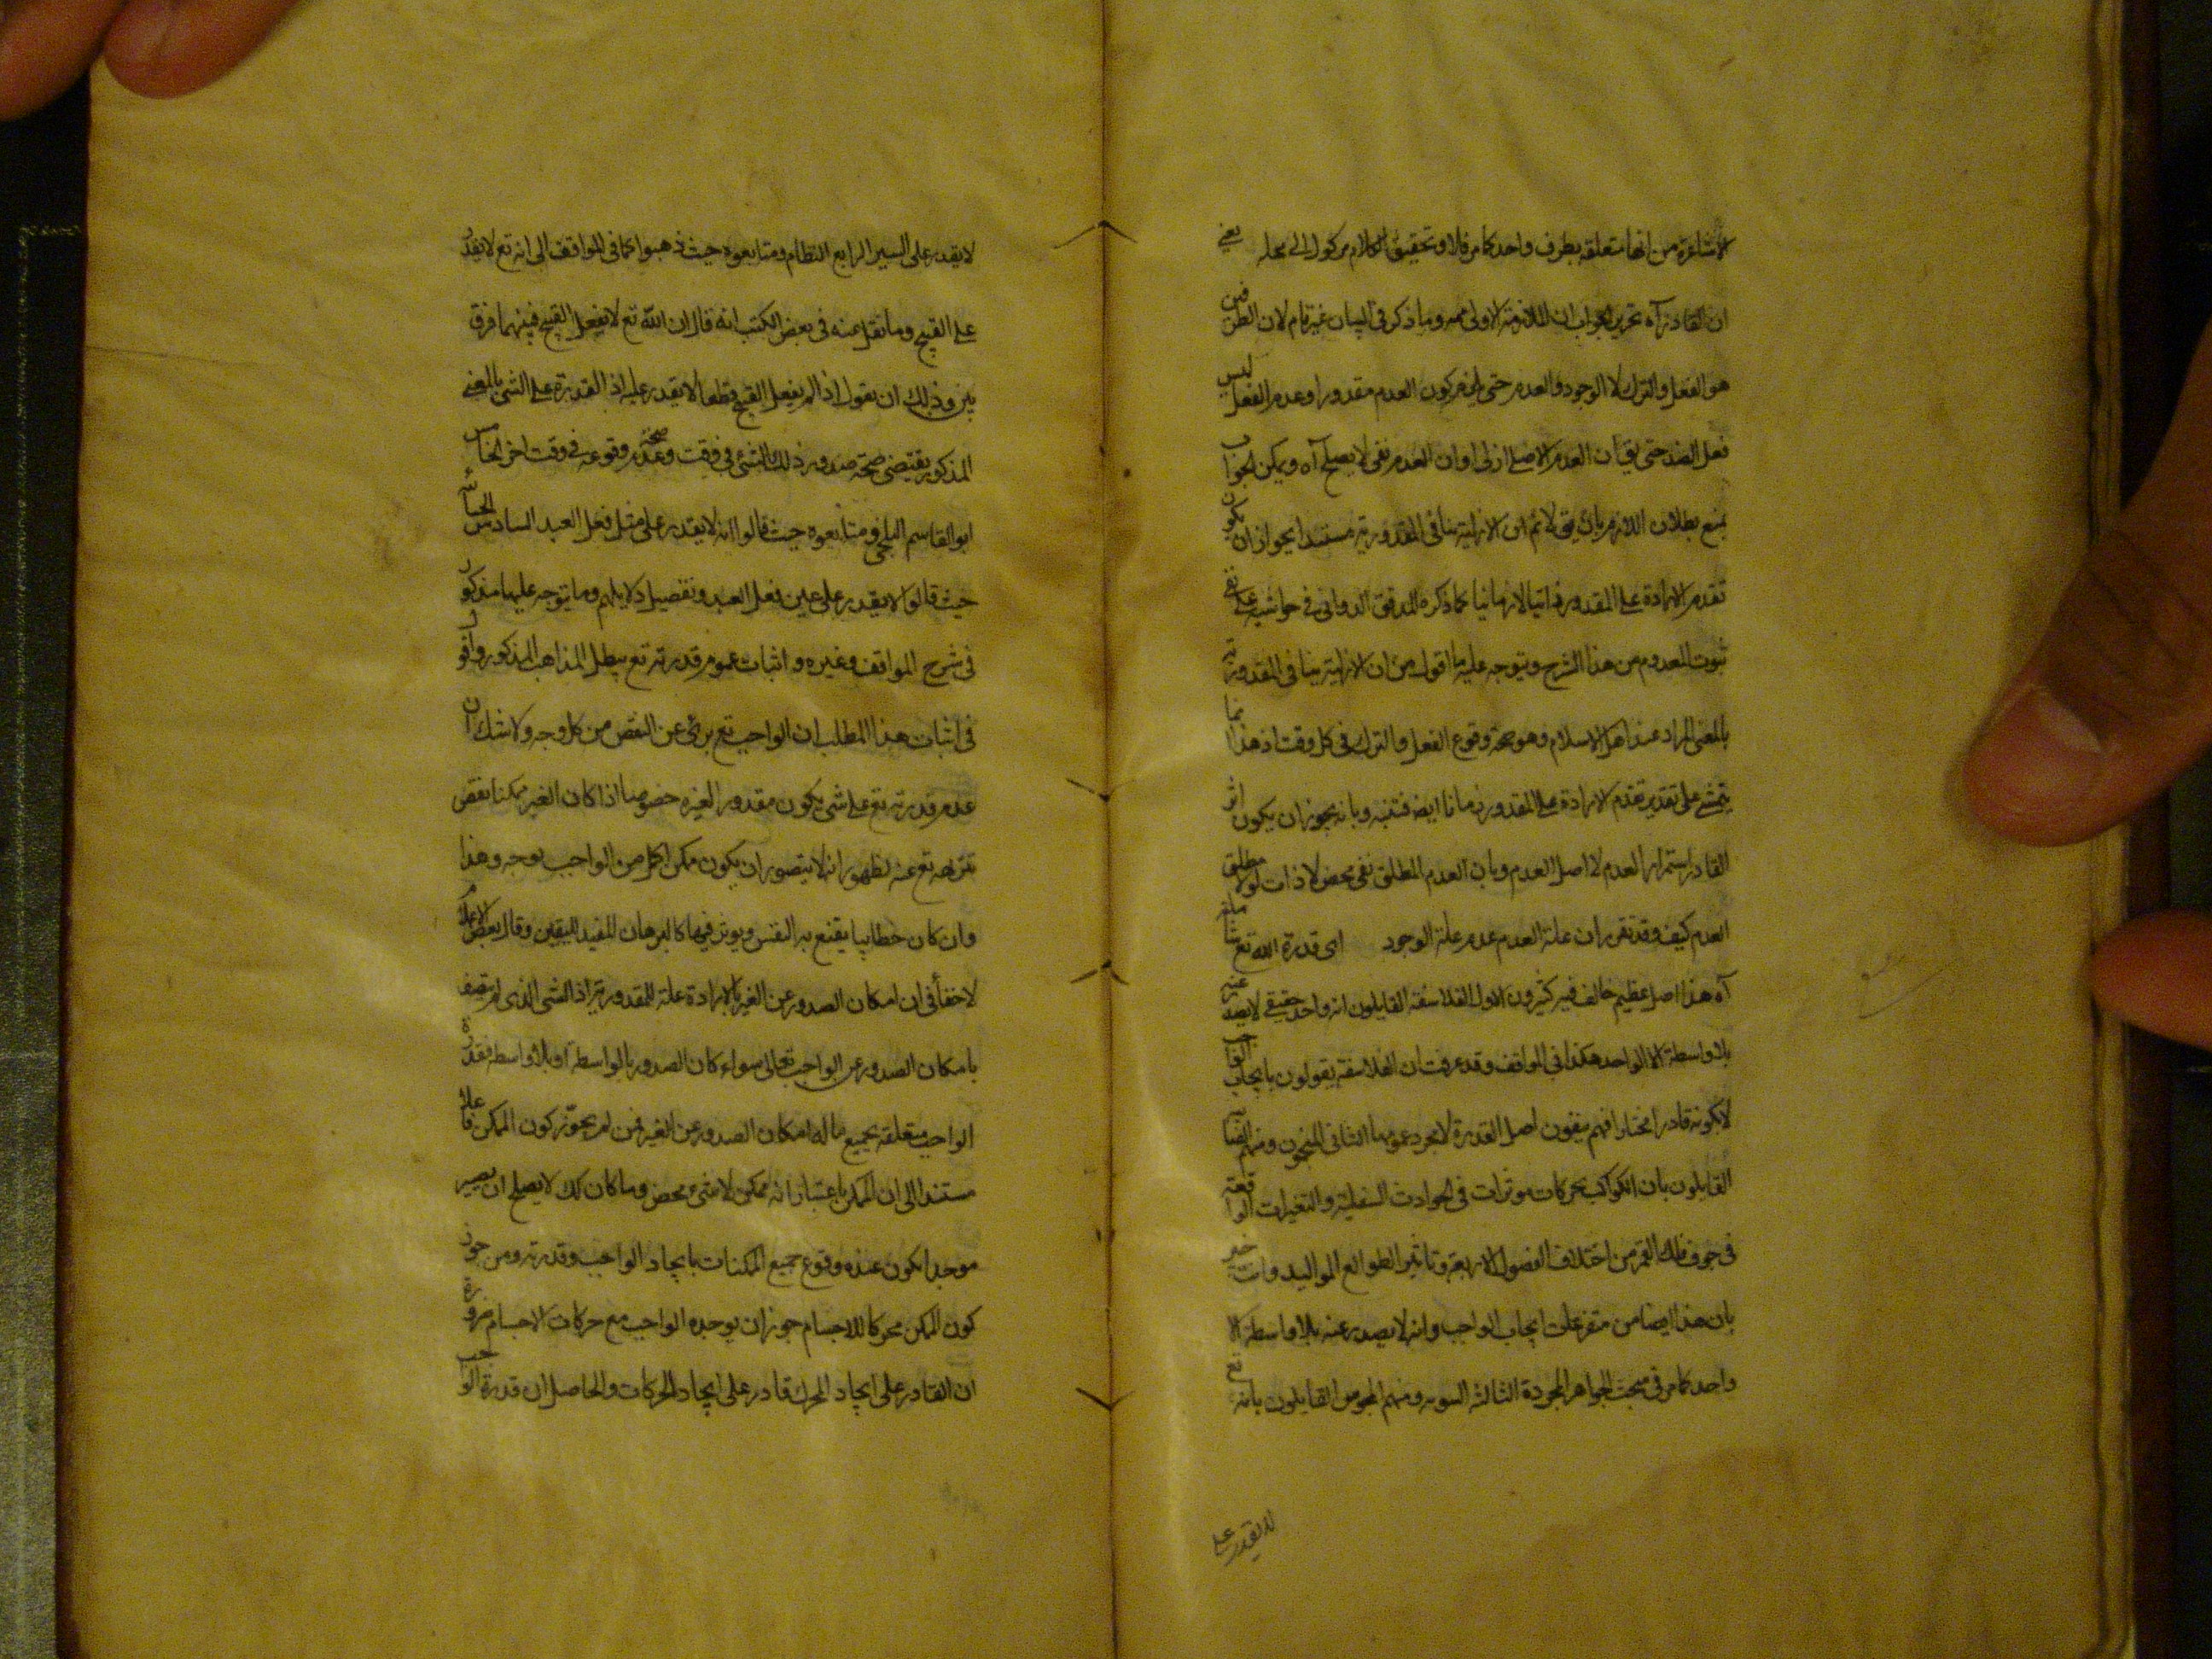 الاشاعرة من انها متعلقة بطرف واحد كما مر فالاو تحقيق الكلام موكول الى محله يعنى
ان القادر آه تحرير الجواب ان الملازمة الاولى ممه وما ذكر فى البيان غير تام لان الطرفين
هو الفعل والترك لا الوجود والعدم حتى يلزم كون العدم مقدورا وعدم الفعل ليس
فعل الضد حتى يق ان العدم الاصلى ازلى او ان العدم نفى لا يصلح آه ويمكن الجواب
بمنع بطلان اللازم بان يق لا نم ان الازلية ينافى المقدورية مستندا بجواز ان يكون
تقدم الارادة على المقدور ذاتيا لا زمانيا كما ذكره المدقق الدوانى فى حواشيه على نفى
ثبوت المعدوم من هذا الشرح ويتوجه عليه ما اقول من ان الازلية ينافى المقدورية
بالمعنى المراد عند اهل الاسلام وهو صحة وقوع الفعل والترك فى كل وقت اذ هذا انما
يتمشى على تقدير تقدم الارادة على المقدور زمانا ايضه فتنبه وبانه يجوز ان يكون اثر
القادر استمرار العدم لا اصل العدم وبان العدم المطلق نفى محض لا ذات له لا مطلق
العدم كيف وقد تقرر ان علة العدم عدم علة الوجود اى قدرة الله تع شاملة
آه هذا اصل عظيم خالف فيه كثيرون الاول الفلاسفة القايلون انه واحد حقيقى لا يصد عنه
بلا واسطة الا الواحد هكذا فى المواقف وقد عرفت ان الفلاسفة يقولون بايجاب الواجب
لا بكونه قادرا مختارا فهم ينفون اصل القدرة لا مجرد عمومها الثانى المنجمون ومنهم الصابئة
القايلون بان الكواكب بحركات موثرات فى الحوادث السفلية والتغيرات الواقعة
فى جوف فلك القمر من اختلاف الفصول الاربعة وتاثير الطوالع المواليد وانت خبير
بان هذا ايضا من متفرعات ايجاب الواجب وانه لا يصدر عنه بلا واسطة الا
واحد كما مر فى مبحث الجواهر المجردة الثالث الثنويه ومنهم المجوس القايلون بانه تع
لا يقدر على
لا يقدر على الشر الرابع النظام ومتابعوه حيث ذهبوا كما فى المواقف الى انه تع لا يقدر
على القبيح وما نقل عنه فى بعض الكتب انه قال ان الله تع لا يفعل القبيح فبينهما فرق
بين وذلك ان يقول اذا لم يفعل القبيح قطعا لا يقدر عليه اذ القدرة على الشى بالمعنى
المذكور يقتضى صحة صدور ذلك الشئ فى وقت وعدم صحة وقوعه فى وقت اخر الخامس
ابو القاسم البلخى ومتابعوه حيث قالوا انه لا يقدر على مثل فعل العبد السادس الجبائية
حيث قالوا لا يقدر على عين فعل العبد وتفصيل دلايلهم وما يتوجه عليها مذكور
فى شرح المواقف وغيره و اثبات عموم قدرته تع يبطل المذاهب المذكور واقول
فى اثبات هذا المطلب ان الواجب تع برئ عن النقص من كل وجه ولا شك ان
عدم قدرته تع على شى يكون مقدور الغيره خصوصا اذا كان الغير ممكنا نقص
تنزهه تع عنه لظهور انه لا يتصور ان يكون ممكن اكمل من الواجب بوجه وهذا
وان كان خطابيا يقنع به النفس ويوثر فيها كالبرهان المفيد لليقين وقال بعض الاعلام
لا خفأ فى ان امكان الصدور عن الغير بالارادة علة المقدورية اذ الشى الذى لم يتصف
بامكان الصدور عن الواجب تعالى سواء كان الصدور بالواسطة او بلا واسطه فقدرة
الواجب متعلقة بجميع ما له امكان الصدور عن الغير فمن لم يجوّز كون الممكن فاعلا
مستندا الى ان الممكن باعتبار انه ممكن لا شئ محض وما كان كك لا يصلح ان يصير
موجدا يكون عنده وقوع جميع الممكنات بايجاد الواجب وقدرته ومن جوز
كون الممكن محركا للاجسام جوز ان يوجده الواجب مع حركات الاجسام ضرورة
ان القادر على ايجاد المحرك قادر على ايجاد الحركات والحاصل ان قدرة الواجب